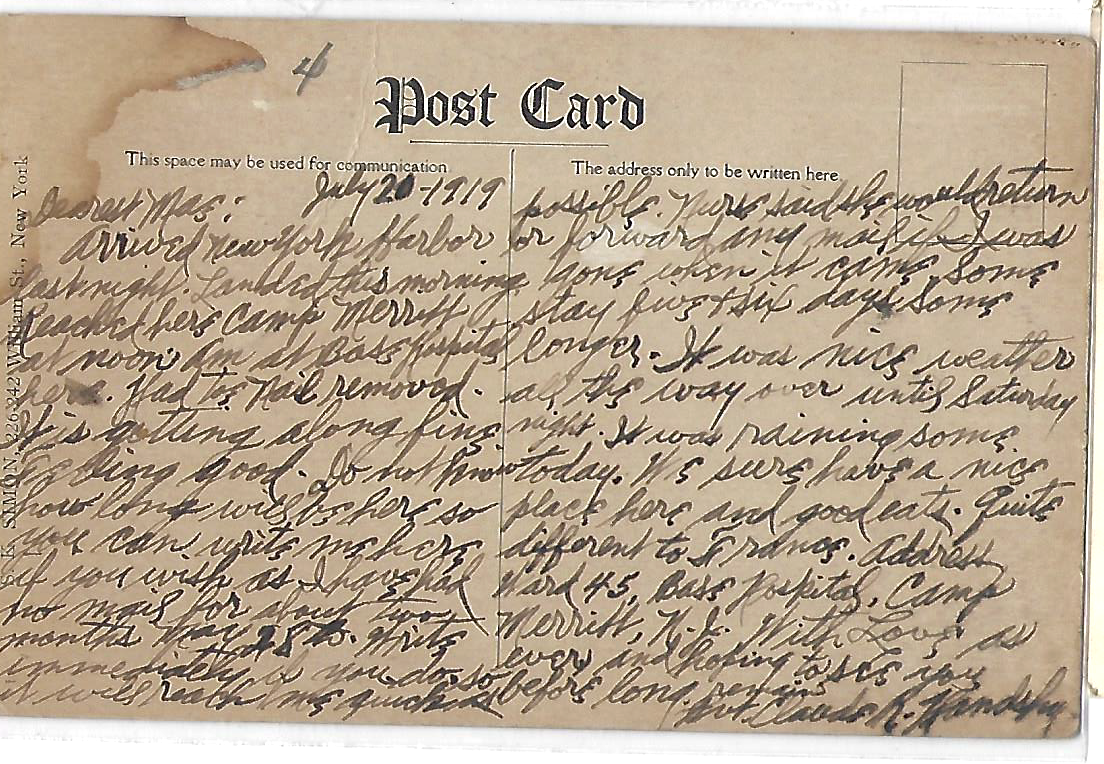 4
Post Card
This space may be used for communication.
The address only to be written here.
S. & E. SIMON, 226-242 William St., New York
Dearest Mae: July 20-1919
Arrived New York Harbor
last night. Landed this morning
Reached here Camp Merritt
at noon. Am at Base Hospital
here. Had toe nail removed.
It is getting along fine.
Feeling good. Do not know
how long will be here so
you can write me here
if you wish as I have had
no mail for about two
months May 25 to. Write
immediately if you do so
it will reach me quick as
possible. Nurse said she would return
or forward any mail if I was
gone when it came. Some
stay five & six days some
longer. It was nice weather
all the way over until Saturday
night. It was raining some
today. We sure have a nice
place here and good eats. Quite
different to France. Address
Ward 45, Base Hospital, Camp
Merritt, N.J. With Love as
ever and hoping to see you
before long, remain
Pvt Claude R.